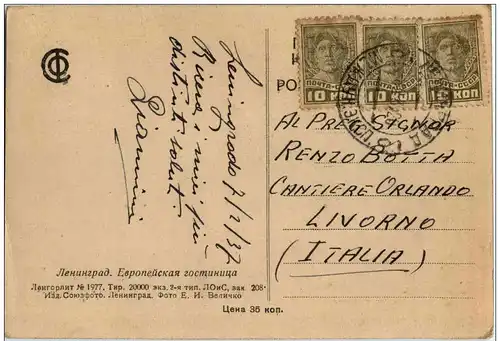 Leningrado 7/2/37
Riceva i miei più
distinti saluti
Giannini
Ленинград. Европейская гостиница
Ленгорлит № 1977. Тир. 20000 экз. 2-я тип. ЛОиС, зак. 208.
Изд. Союзфото. Ленинград. Фото Е. И. Величко
Цена 35 коп.
ПОЧТА СССР
10 КОП
ПОЧТА СССР
10 КОП
ПОЧТА СССР
10 КОП
Al Preg. Signor
Renzo Botta
Cantiere Orlando
Livorno
(Italia)